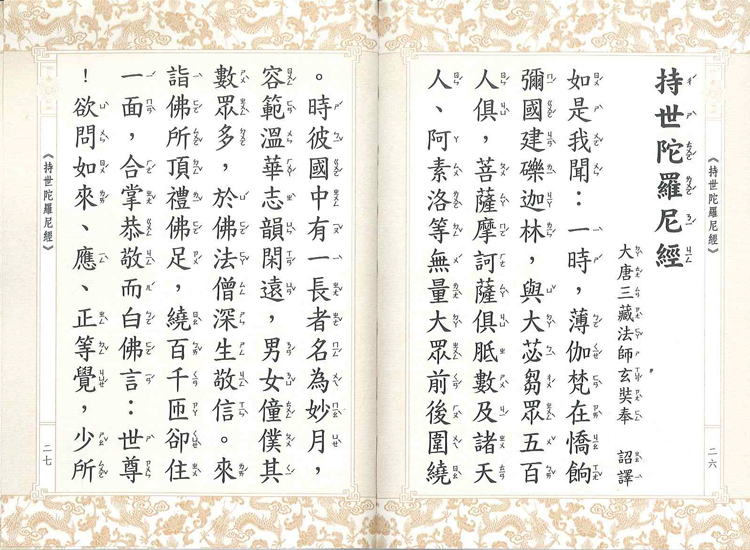 《持世陀羅尼經》
二六
持世陀羅尼經
大唐三藏法師玄奘奉　詔譯
如是我聞：一時，薄伽梵在憍餉
彌國建礫迦林，與大苾芻眾五百
人俱，菩薩摩訶薩俱胝數及諸天
人、阿素洛等無量大眾前後圍繞
。時彼國中有一長者名為妙月，
容範溫華志韻閑遠，男女僮僕其
數眾多，於佛法僧深生敬信。來
詣佛所頂禮佛足，繞百千匝卻住
一面，合掌恭敬而白佛言：世尊
！欲問如來、應、正等覺，少所
《持世陀羅尼經》
二七